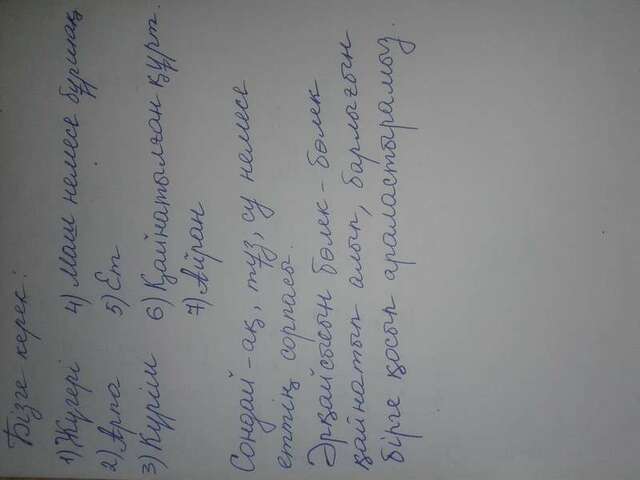 Бізге керек:
1) Жүгері 4) Маш немесе бұршақ
2) Арпа 5) Ет
3) Күріш 6) Қайнатылған құрт.
7) Айран
Сондай-ақ, тұз, су немесе
еттің сорпасы.
Әрқайсысын бөлек-бөлек
қайнатып алып, барлығын
бірге қосып араластырамыз.